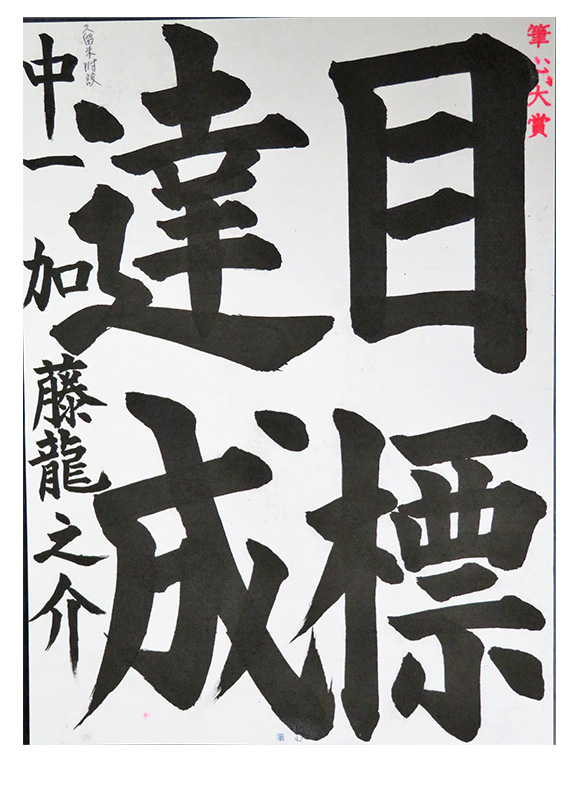 筆心大賞
目標
達成
久留米附設
中一 加藤龍之介
筆心